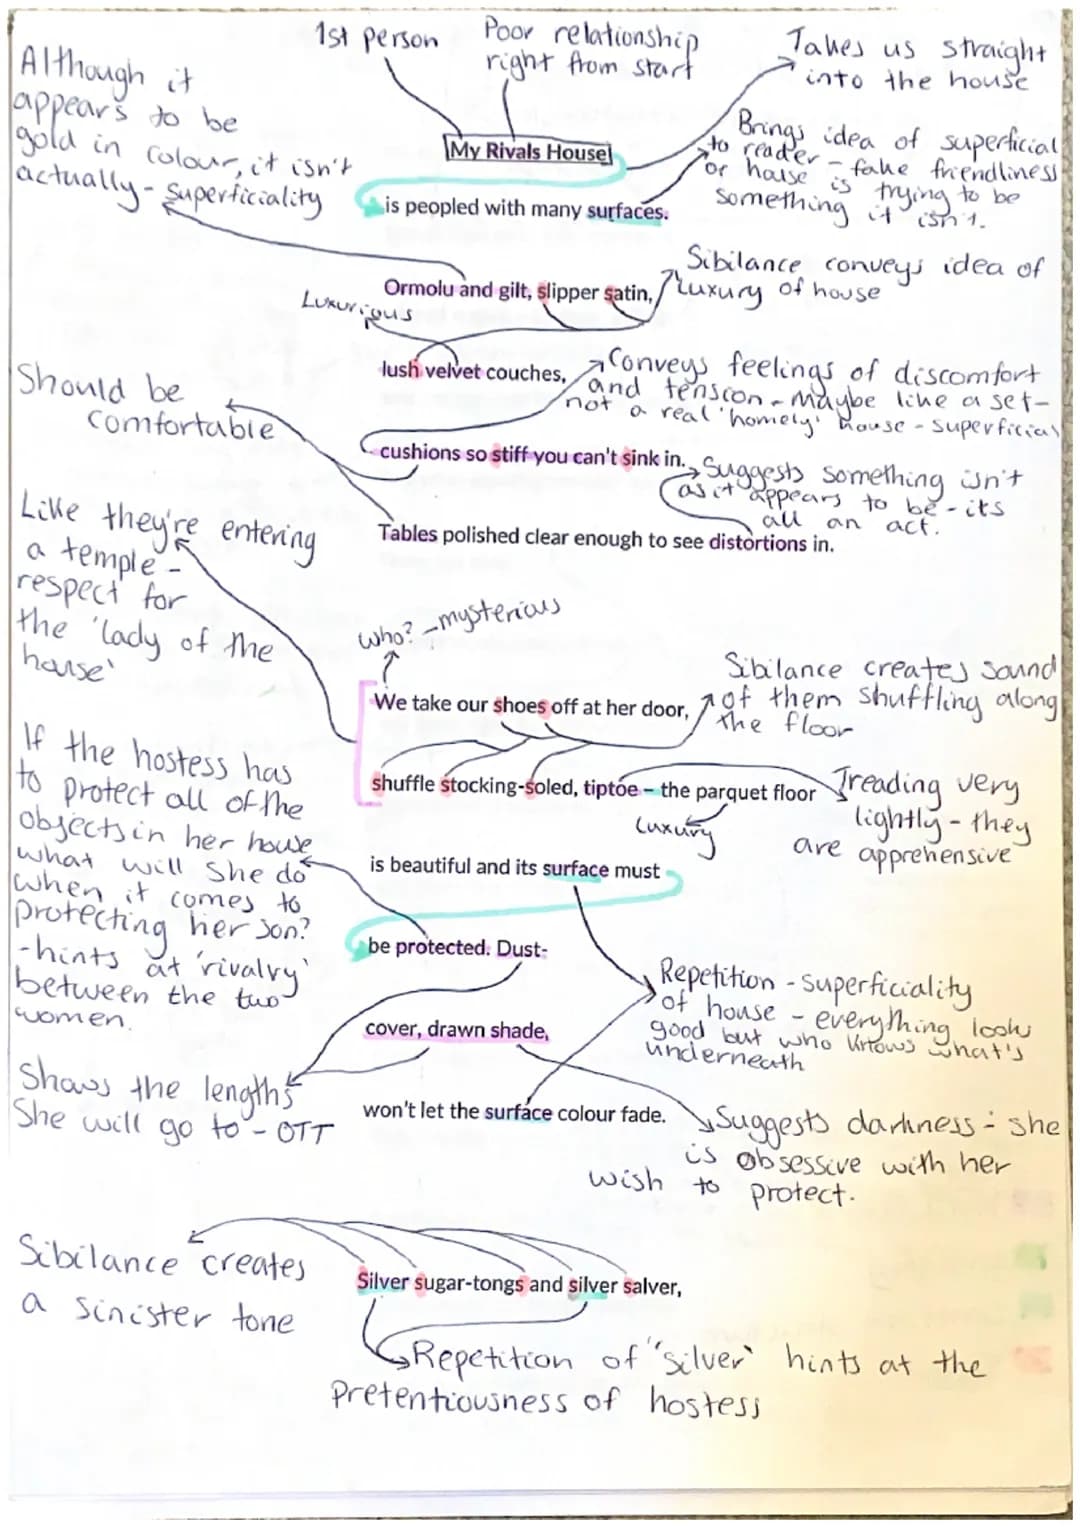 1st person
Poor relationship
right from start
Takes us straight
into the house
Although it
appears to be
gold in colour, it isn't
actually - superficiality
My Rivals House
Brings idea of superficial
to reader - fake friendliness
or house is trying to be
something it isn't.
is peopled with many surfaces.
Sibilance conveys idea of
luxury of house
Ormolu and gilt, slipper satin,
Luxurious
lush velvet couches,
Conveys feelings of discomfort
and tenscon - Maybe like a set-
not a real 'homely' house - superficial
Should be
comfortable
cushions so stiff you can't sink in.
Suggests something isn't
as it appears to be - its
all an act.
Tables polished clear enough to see distortions in.
Like they're entering
a temple -
respect for
the 'lady of the
house'
who? - mysterious
We take our shoes off at her door,
Sibilance creates sound
of them shuffling along
the floor
shuffle stocking-soled, tiptoe – the parquet floor
Treading very
lightly - they
are apprehensive
luxury
If the hostess has
to protect all of the
objects in her house
what will she do
when it comes to
protecting her son?
- hints at 'rivalry'
between the two
women.
is beautiful and its surface must
be protected. Dust-
Repetition - superficiality
of house - everything looks
good but who knows what's
underneath
cover, drawn shade,
Shows the lengths
She will go to - OTT
won't let the surface colour fade.
Suggests darkness - she
is obsessive with her
wish to protect.
Sibilance creates
a sinister tone
Silver sugar-tongs and silver salver,
Repetition of "silver" hints at the
Pretentiousness of hostess